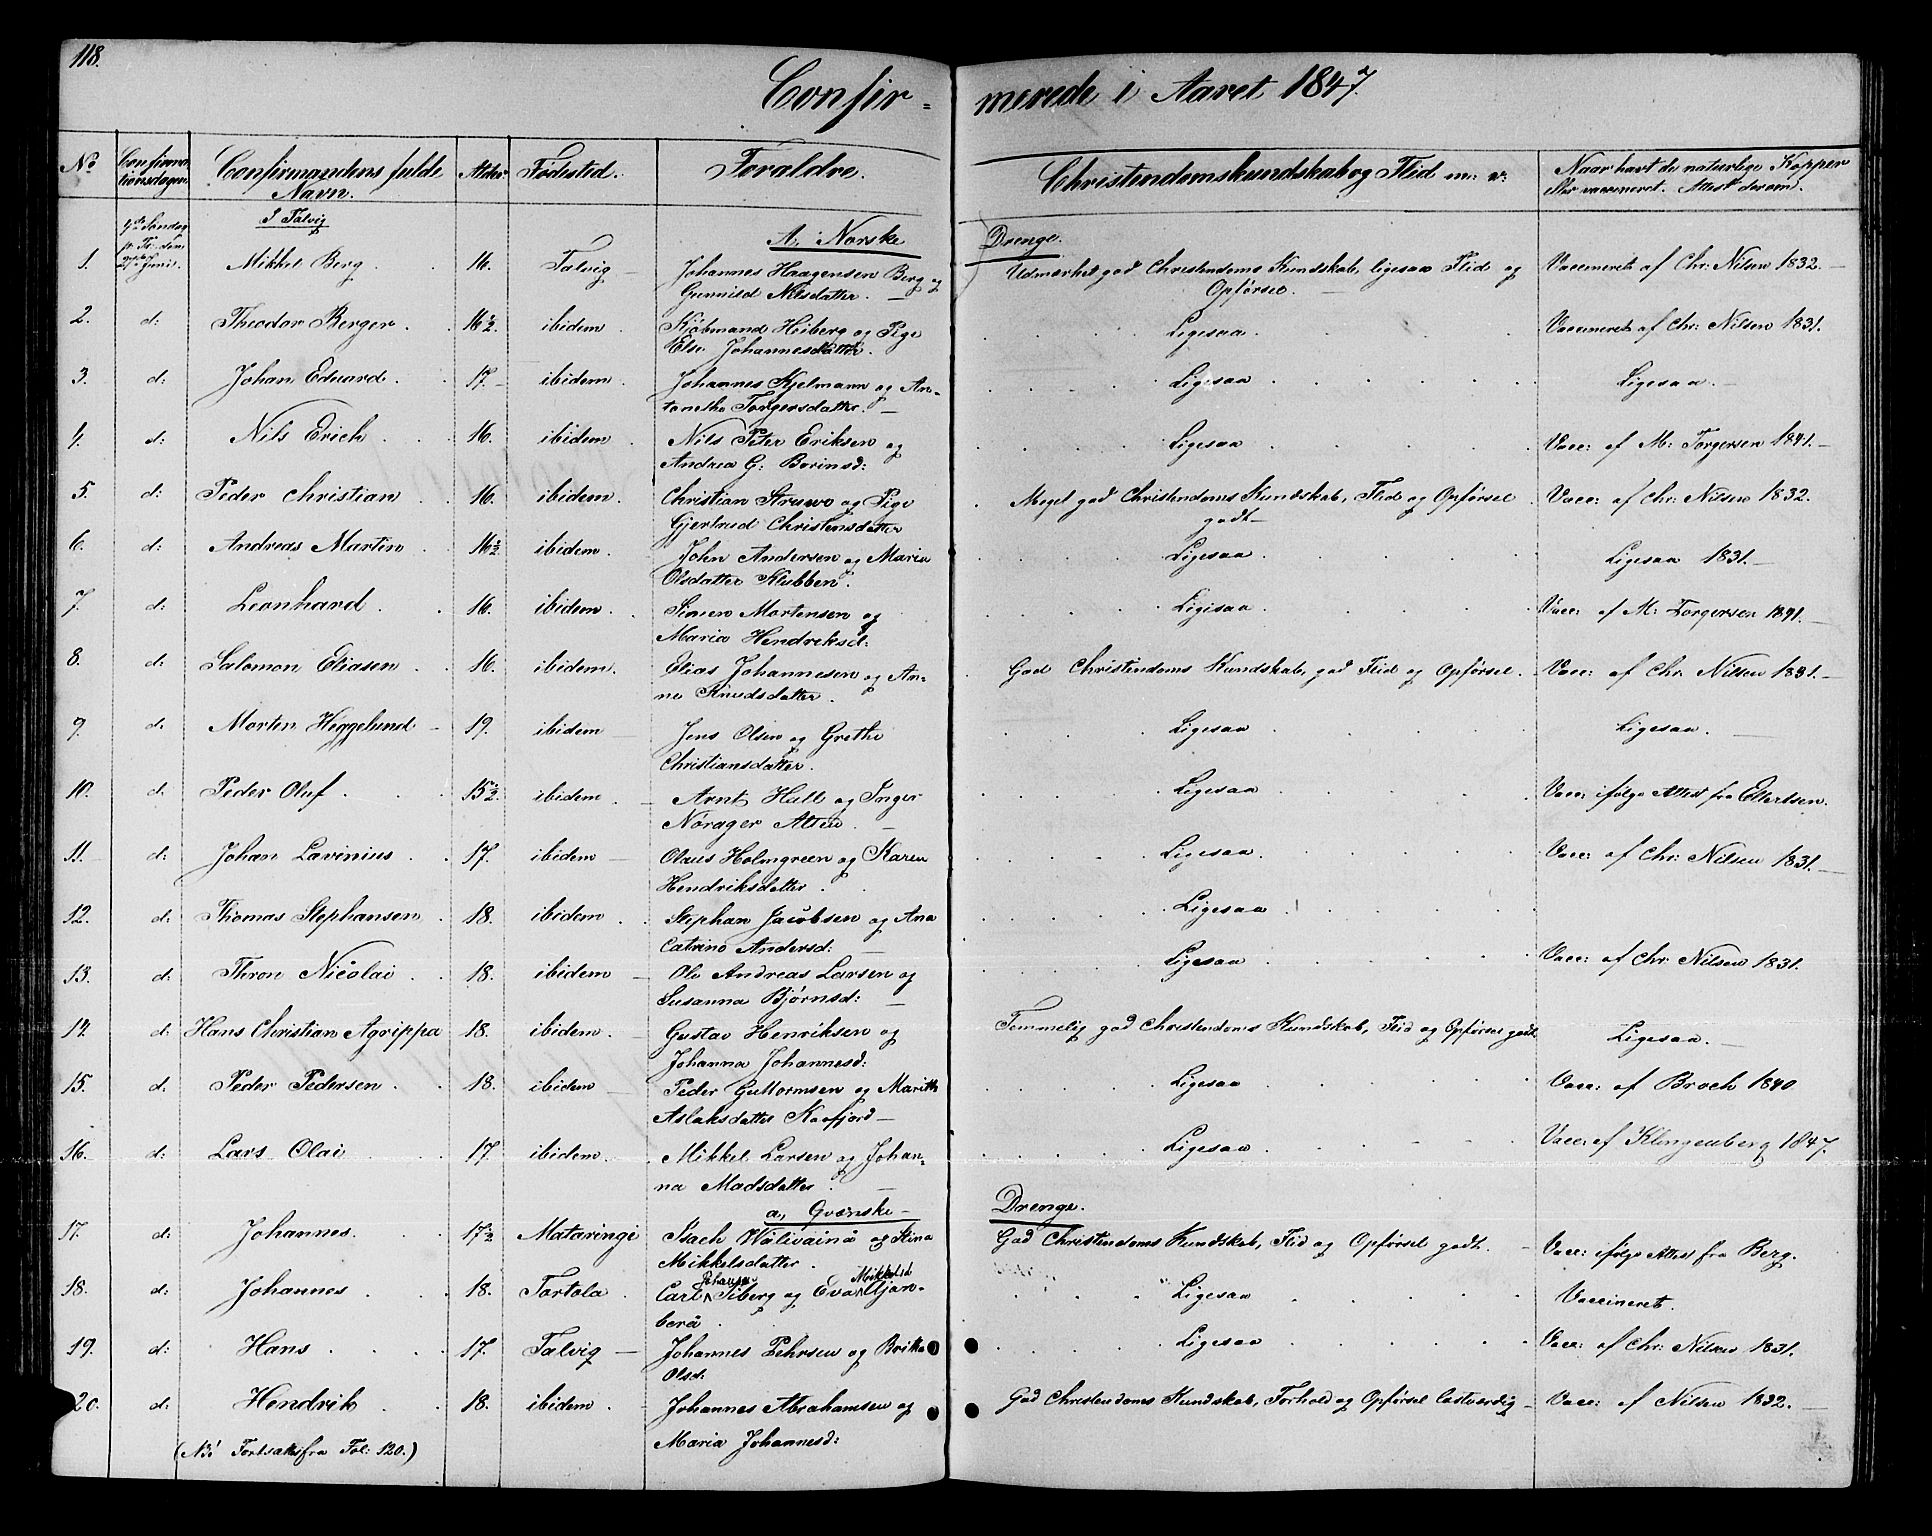 118.
Confir= merede i Aaret 1847.
No Confirma- tionsdagen Confirmandens fulde Navn. Alder Fødested. Forældre. Christendomskundskab og Flid m: v: Naar havt de naturlige Kopper eller vaccineret. Attest derom.
I Talvig
A. Norske Drenge.
1. Søndag p. Tr: Juni. Mikkel Berg. 16. Talvig Johannes Haagensen Berg og Udmærket god Christendoms Kundskab, ligesaa Flid og Vaccineret af Chr: Nilsen 1832.
Gunnild Nilsdatter. Opførsel.
2. d: Theodor Berger. 16½. ibidem. Kjöbmand Heiberg og Pige Ligesaa Vaccineret af Chr: Nilsen 1831.
Else Johannesdatter.
3. d: Johan Eduard. 17. ibidem. Johannes Kjelmann og An- Ligesaa Ligesaa.
tonetha Torgersdatter.
4. d: Nils Erich. 16. ibidem. Nils Peter Eriksen og Ligesaa Vacc: af M: Torgersen 1841.
Andrea G: Borinsd:
5. d: Peder Christian. 16. ibidem. Christian Struwe og Pige Meget god Christendoms Kundskab, Flid og Opførsel Vacc: af Chr: Nilsen 1832.
Gjertrud Christensdatter godt
6. d: Andreas Martin. 16½ ibidem. John Andersen og Maria Ligesaa. Ligesaa 1831.
Olsdatter Klubben.
7. d: Leonhard. 16. ibidem. Simen Mortensen og Ligesaa. Vacc: af M: Torgersen 1841.
Maria Hendriksd:
8. d: Salomon Eliasen. 16. ibidem. Elias Johannesen og An- God Christendoms Kundskab, god Flid og Opførsel. Vacc: af Chr: Nilsen 1831.
ne Knudsdatter.
9. d: Morten Heggelund 19. ibidem Jens Olsen og Grethe Ligesaa Ligesaa.
Christiansdatter.
10. d: Peder Oluf. 15½. ibidem. Arnt Hall og Inger Ligesaa Vacc: ifølge Attest fra Ellertsen.
Nörager Alten.
11. d: Johan Lavinius. 17. ibidem Olaus Holmgreen og Karen Ligesaa. Vacc: af Chr: Nilsen 1831.
Hendriksdatter.
12. d: Thomas Stephansen. 18. ibidem. Stephan Jacobsen og Ana Ligesaa
Catrine Andersd:
13. d: Thron Nicolai. 18. ibidem Ole Andreas Larsen og Ligesaa Vacc: af Chr Nilsen 1831.
Susanna Bjørnsd:
14. d: Hans Christian Agrippa 18. ibidem. Gustav Henriksen og Temmelig god Christendoms Kundskab, Flid og Opførsel godt Ligesaa.
Johanna Johannesd:
15. d: Peder Pedersen. 18. ibidem Peder Guttormsen og Marith Ligesaa Vacc: af Broch 1840
Aslaksdatter Kaafjord
16. d: Lars Olai. 17 ibidem. Mikkel Larsen og Johan- Ligesaa Vacc: af Klingenberg 1847.
na Madsdatter.
a, Qvænske Drenge.
17. d: Johannes. 17½ Mataringi Isach Wälivainä og Stina God Christendoms Kundskab, Flid og Opførsel godt. Vacc: ifølge Attest fra Berg.
Mikkelsdatter.
18. d: Johannes. 18. Tortola. Carl Johansen Siberg og Eva Mikkelsd Ajan- Ligesaa Vaccineret.
berä.
19. d: Hans. 17. Talvig Johannes Pehrsen og Brikka Ligesaa Vacc: af Chr: Nilsen 1831.
Olsd:
20. d: Hendrik. 18. ibidem Johannes Abrahamsen og God Christendoms Kundskab, Forhold og Opførsel lastværdig Vacc: af Nilsen 1832.
Maria Johannesd:
(NB! Fortsættes fra Fol: 120.)